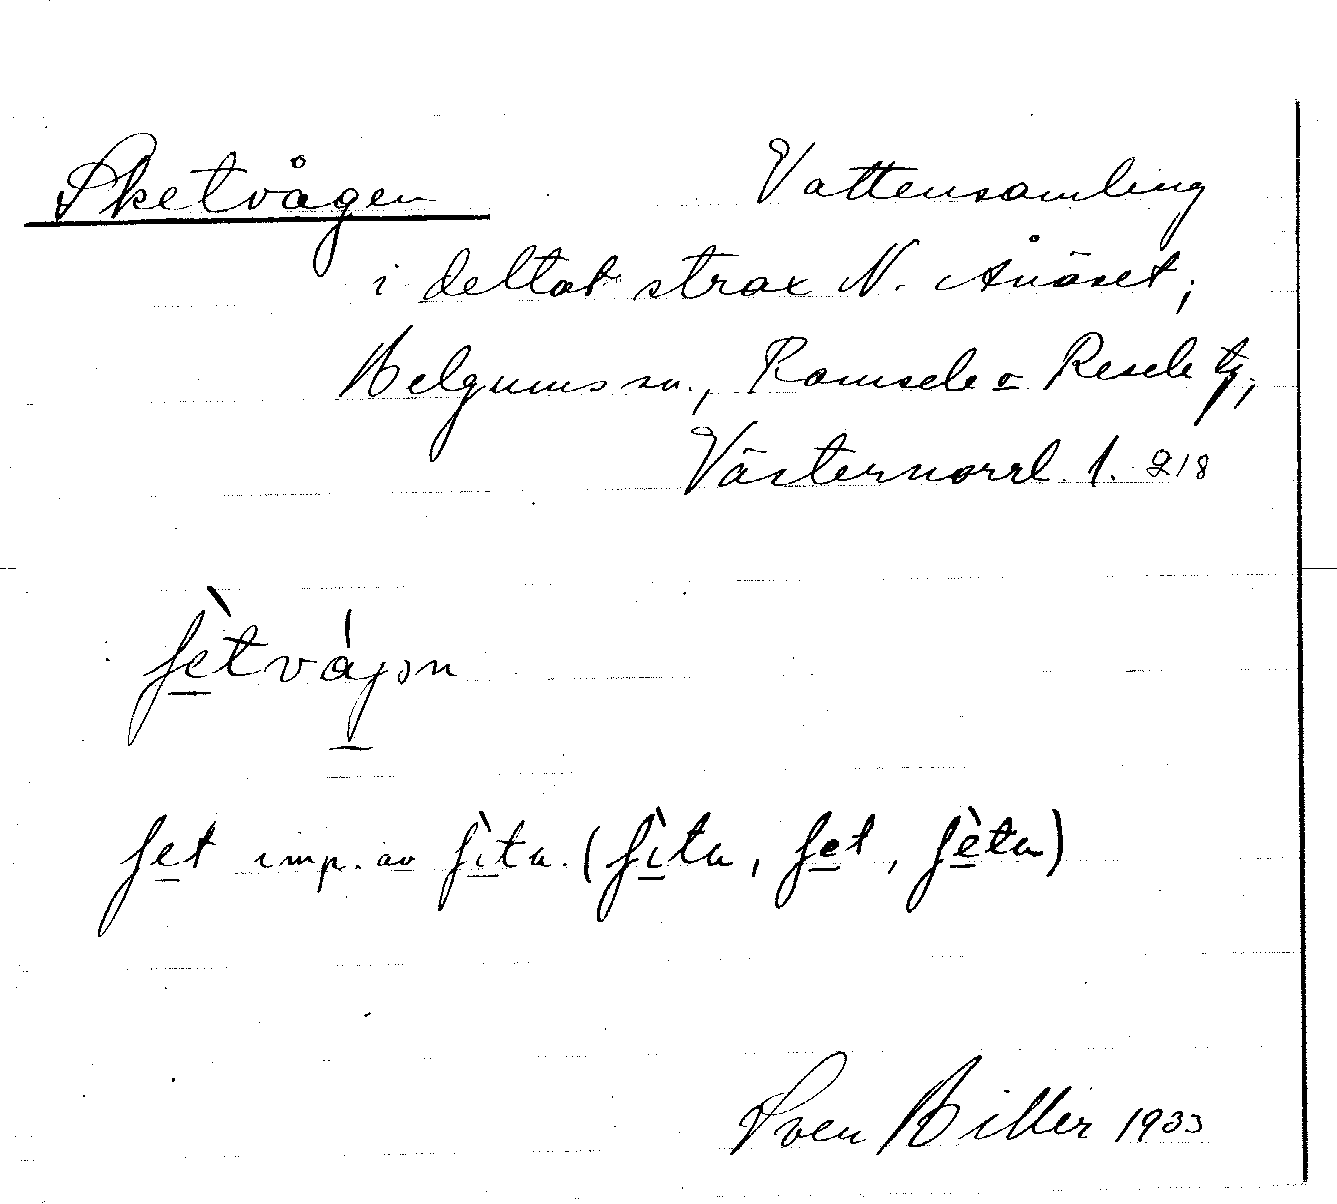 Sketvågen Vattensamling
i deltat strax N. Ånäset,
Helgums sn., Ramsele o Resele tg,
Västernorrl. l. 218
ʃè̲tvágo̲n
ʃe̲t imp. av ʃì̲ta. (ʃì̲ta, ʃe̲t, ʃè̲ta)
Sven Hiller 1933